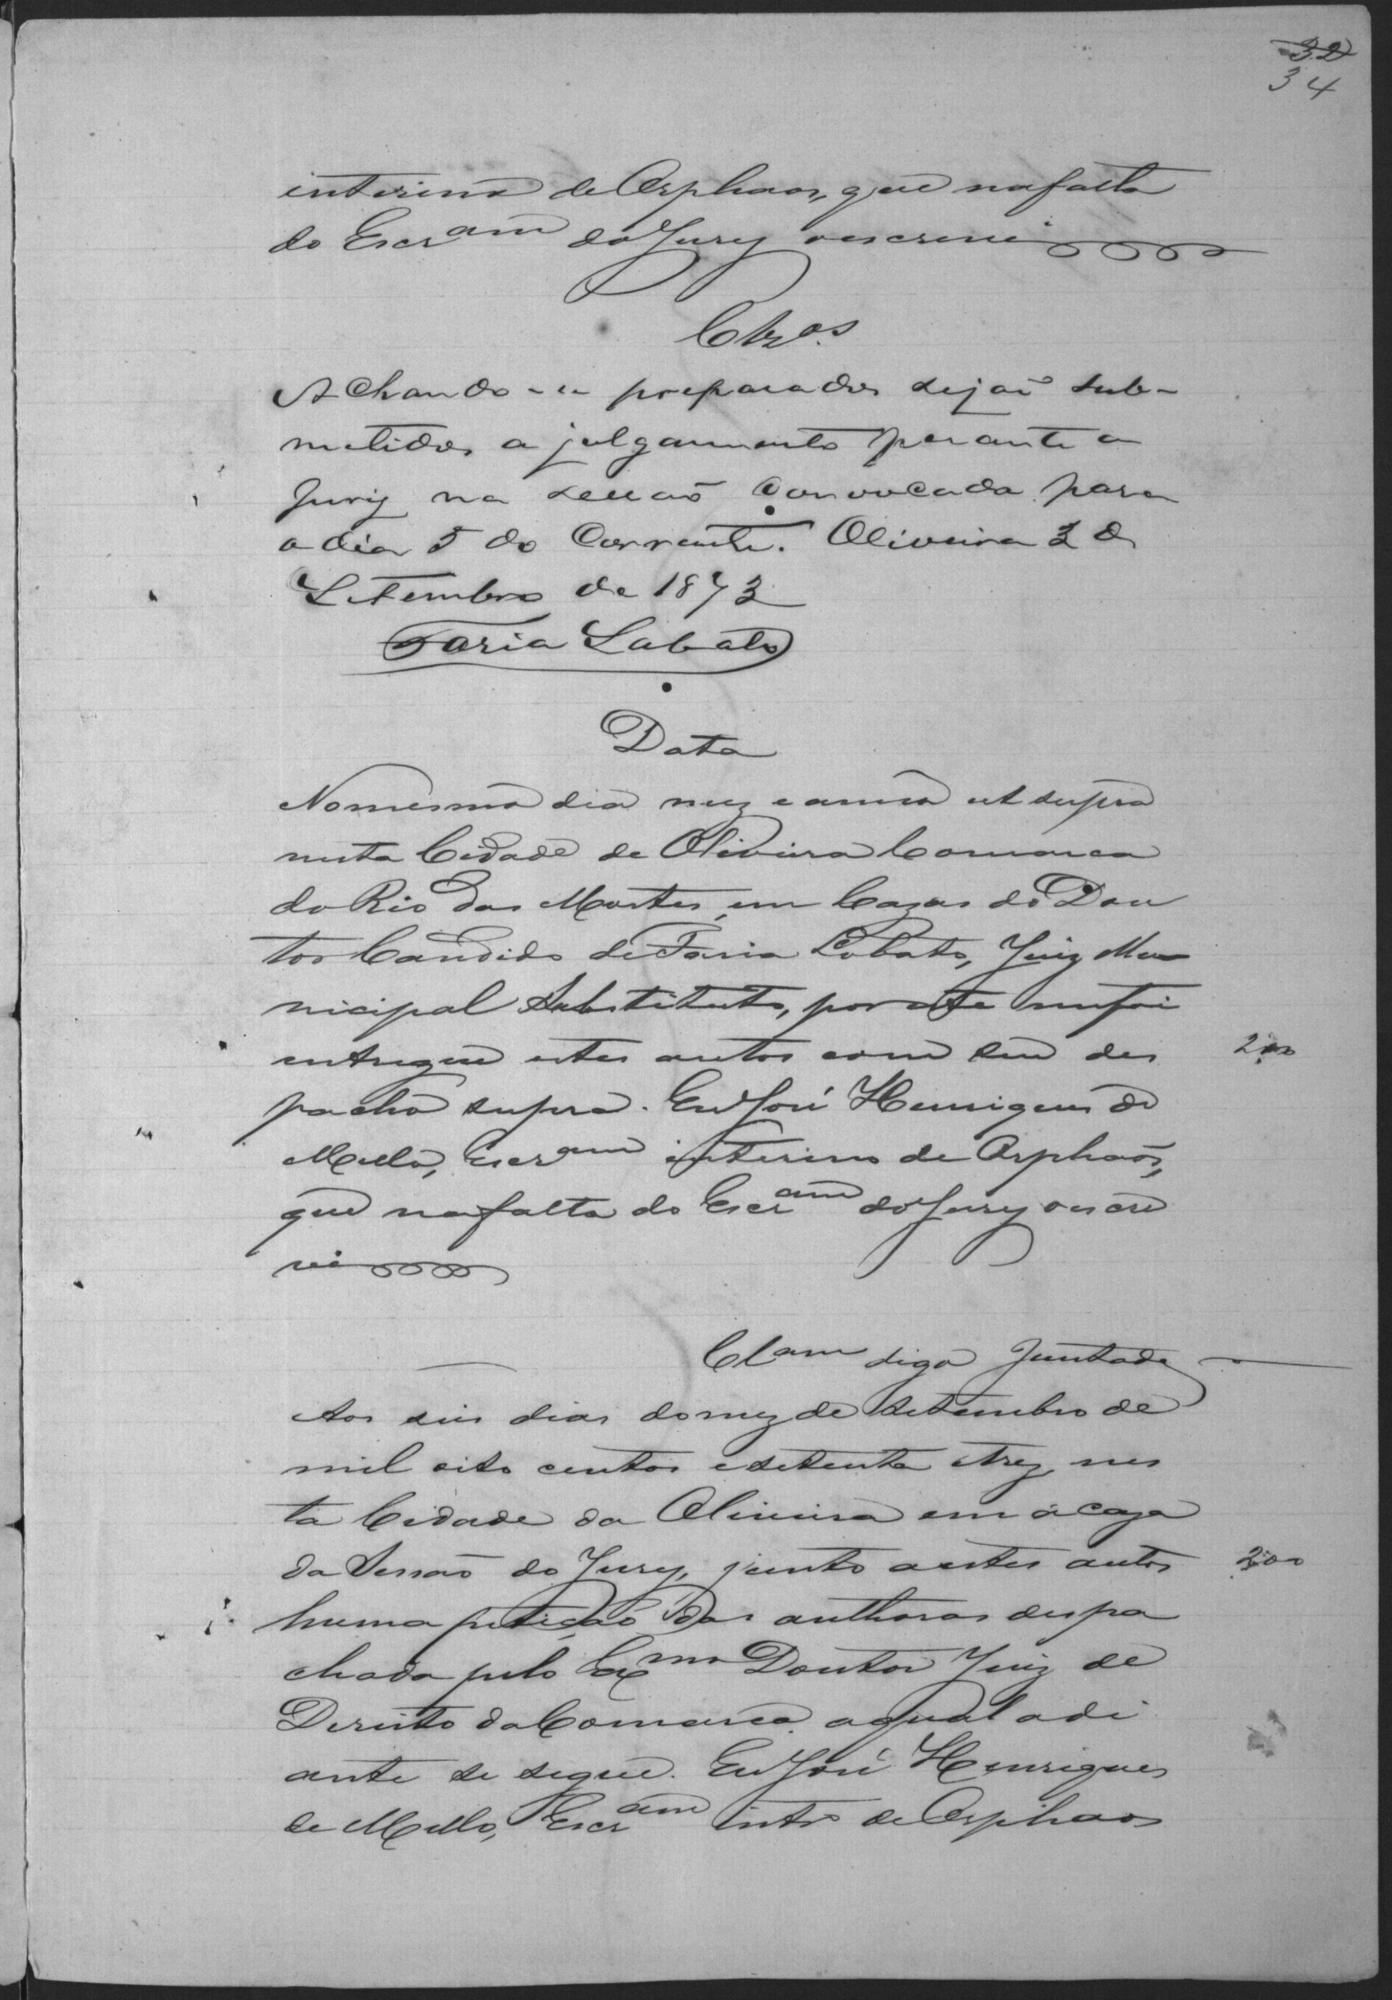 32
34
interino de Orphaos, que na falta
do Escr.am do Jury o escrevi
Clzos.
Achando-se preparados sejaõ sub-
metidos a julgamento perante o
Jury na sessaõ convocada para
o dia 5 do Corrente. Oliveira 3 de
Setembro de 1873
Faria Lobato
Data
No mesmo dia mez e anno ut supra
nesta Cidade de Oliveira Comarca
do Rio das Mortes, em Cazas do Dou
tor Candido de Faria Lobato, Juiz Mu
nicipal Substituto, por este me foi
entregue estes autos com seu des 200
pacho supra. Eu José Henriques de
Mello, Escr.am interino de Orphaõs,
que na falta do Escr.am do Jury o escre
vi
Cl.am digo Juntada
Aos seis dias do mez de Setembro de
mil oito centos e setenta e trez, nes
ta Cidade da Oliveira em a caza
da Sessaõ do Jury, junto a estes autos 200
huma petiçaõ das authoras despa
chada pelo Ex.mo Doutor Juiz de
Direito da Comarca a qual adi
ante se segue. Eu José Henriques
de Mello, Escr.am int.o de Orphaos